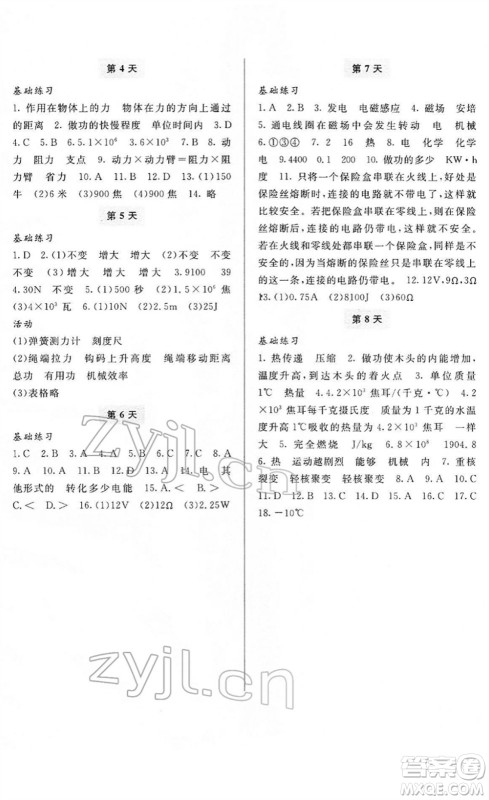 第 4 天
基础练习
1. 作用在物体上的力　物体在力的方向上通过
的距离　2. 做功的快慢程度　单位时间内　3. D
4. C　5. B　6. 5.1×10⁶　3.6×10³　7. B　8. 动力
动力　阻力　支点　9. 动力×动力臂=阻力×阻
力臂　省力　10. A　11. D　12. C　13. (1)150
牛　(2)6 米　(3)900 焦　(4)900 焦　14. 略
第 5 天
基础练习
1. D　2. (1)不变　增大　增大　(2)不变　不变
不变　(3)增大　增大　增大　3. 9100　39
4. 30N　不变　5. D　6. B　7. (1)2×10⁵ 焦
(2)3×10⁵ 焦　(3)4×10³ 瓦　8. (1)2N　(2)2.5m　(3)25J
活动
(1)弹簧测力计　刻度尺
(2)绳端拉力　钩码上升高度　绳端移动距离
总功　有用功　机械效率
(3)表格略
第 6 天
基础练习
1. C　2. B　3. A　4. B　5. B　6. C　7. B　8. A
9. A　10. A　11. D　12. D　13. A　14. 电　其
他形式的　转化多少电能　15. A. <　B. >
C. <　D. >　16. (1)12V　(2)12Ω　(3)2.25W
第 7 天
基础练习
1. A　2. B　3. 发电　电磁感应　4. 磁场　安培
5. 通电线圈在磁场中会发生转动　电　机械
6. ①③④　7. 2　16　热　8. 电　化学　化学
电　9. 4400　0.1　200　10. 做功的多少　KW·h
度　11. 如果把一个保险盒串联在火线上，好处是
保险丝熔断时，连接的电路不带电了，这样就
比较安全。若把这个保险盒串联在零线上，则
保险丝熔断时，连接的电路仍带电，这样就不
安全。若在火线与零线都串联一个保险盒，结
果是如果零线的保险丝熔断而火线上的保险
丝没有熔断，连接的电路仍带电，这样就不安
全；如果两个保险盒的保险丝只是火线上的熔
断了，连接的电路仍带电。　12. 12V, 9Ω, 3Ω
13. (1)0.75A　(2)8100J　(3)60Ω
第 8 天
基础练习
1. 热传递　压缩　2. 做功使木头的内能增加，
温度升高，达到木头的着火点　3. 单位质量
1℃　热量　4. 4.2×10³ 焦耳/(千克·℃)　4.2
×10³ 焦耳每千克摄氏度　质量为 1 千克的水温
度升高 1℃吸收的热量为 4.2×10³ 焦耳　8.4×
10⁵　5. 完全燃烧　J/kg　6.8×10⁹　1904.8
6. 热　运动越剧烈　能够　机械　内　7. 重核
裂变　轻核聚变　轻核聚变　8. D　9. D　10. B
11. C　12. A　13. C　14. D　15. A　16. C　17. C
18. −10℃
zyjl.cn
zyjl.cn
答案圈
MXQE.COM